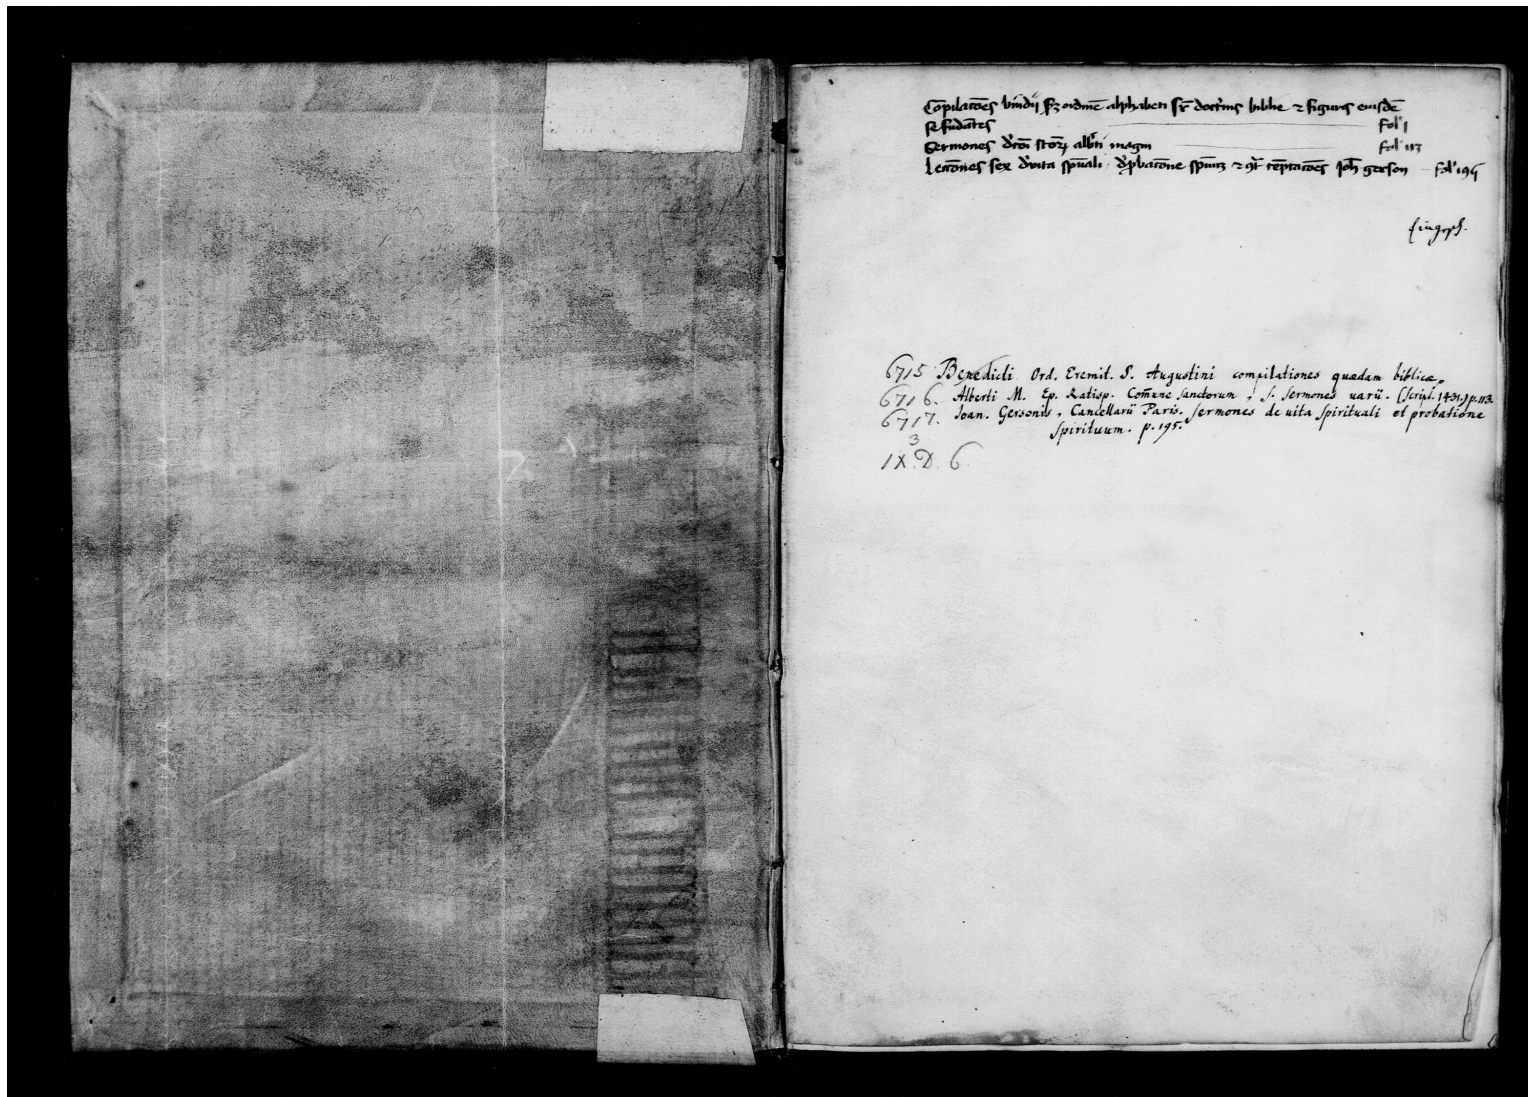 Co̅pilac̅o̅es bn̅dij scd̅m ordine̅ alphabeti sup̲ doctri̅s biblie ⁊ figuras eiusde̅
se fu̅da̅tes Fol' 1
Sermones de co̅i sc̅or̅ alb̅ti magni Fol' 113
Lecc̅o̅nes sex de vita sp̅uali de p̲bac̅o̅ne sp̅uu̅ ⁊ te̅ptac̅o̅es Joh̅ gerson fol' 195
6715 Benedicti Ord. Eremit. S. Augustini compilationes quædam biblicæ.
6716. Alberti M. Ep. Ratisp. Com̅une Sanctorum, s. Sermones varii. (Script. 1431.) p. 113.
6717. Joan. Gersonis, Cancellarii Paris. Sermones de vita spirituali et probatione
spirituum. p. 195.
3
IX. D. 6.